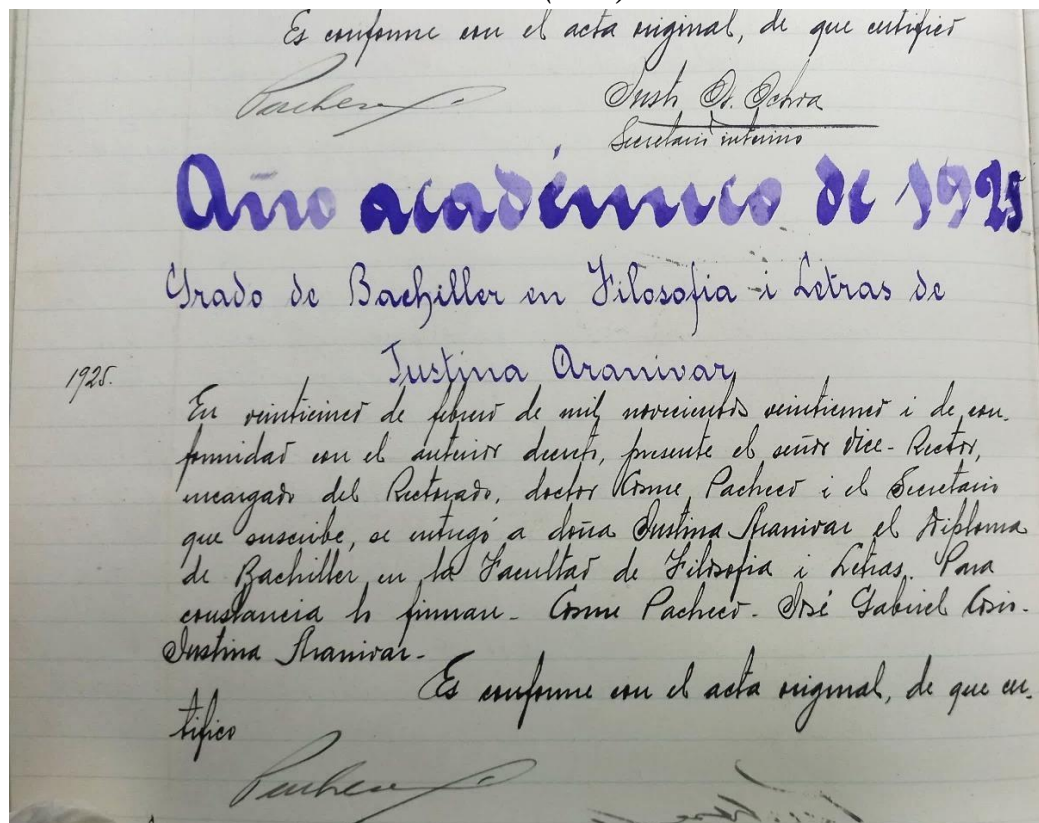 Es conforme con el acta original, de que certifico
Pacheco
Justo Z. Ochoa
Secretario interino
Año académico de 1925
Grado de Bachiller en Filosofia i Letras de
Justina Aranivar
1925.
En veinticinco de febrero de mil novecientos veinticinco i de con-
formidad con el anterior decreto, presente el señor Vice-Rector,
encargado del Rectorado, doctor Cosme Pacheco i el Secretario
que suscribe, se entregó a doña Justina Aranivar el Diploma
de Bachiller en la Facultad de Filosofia i Letras. Para
constancia lo firman - Cosme Pacheco - José Gabriel Cosio -
Justina Aranivar -
Es conforme con el acta original, de que cer-
tifico
Pacheco